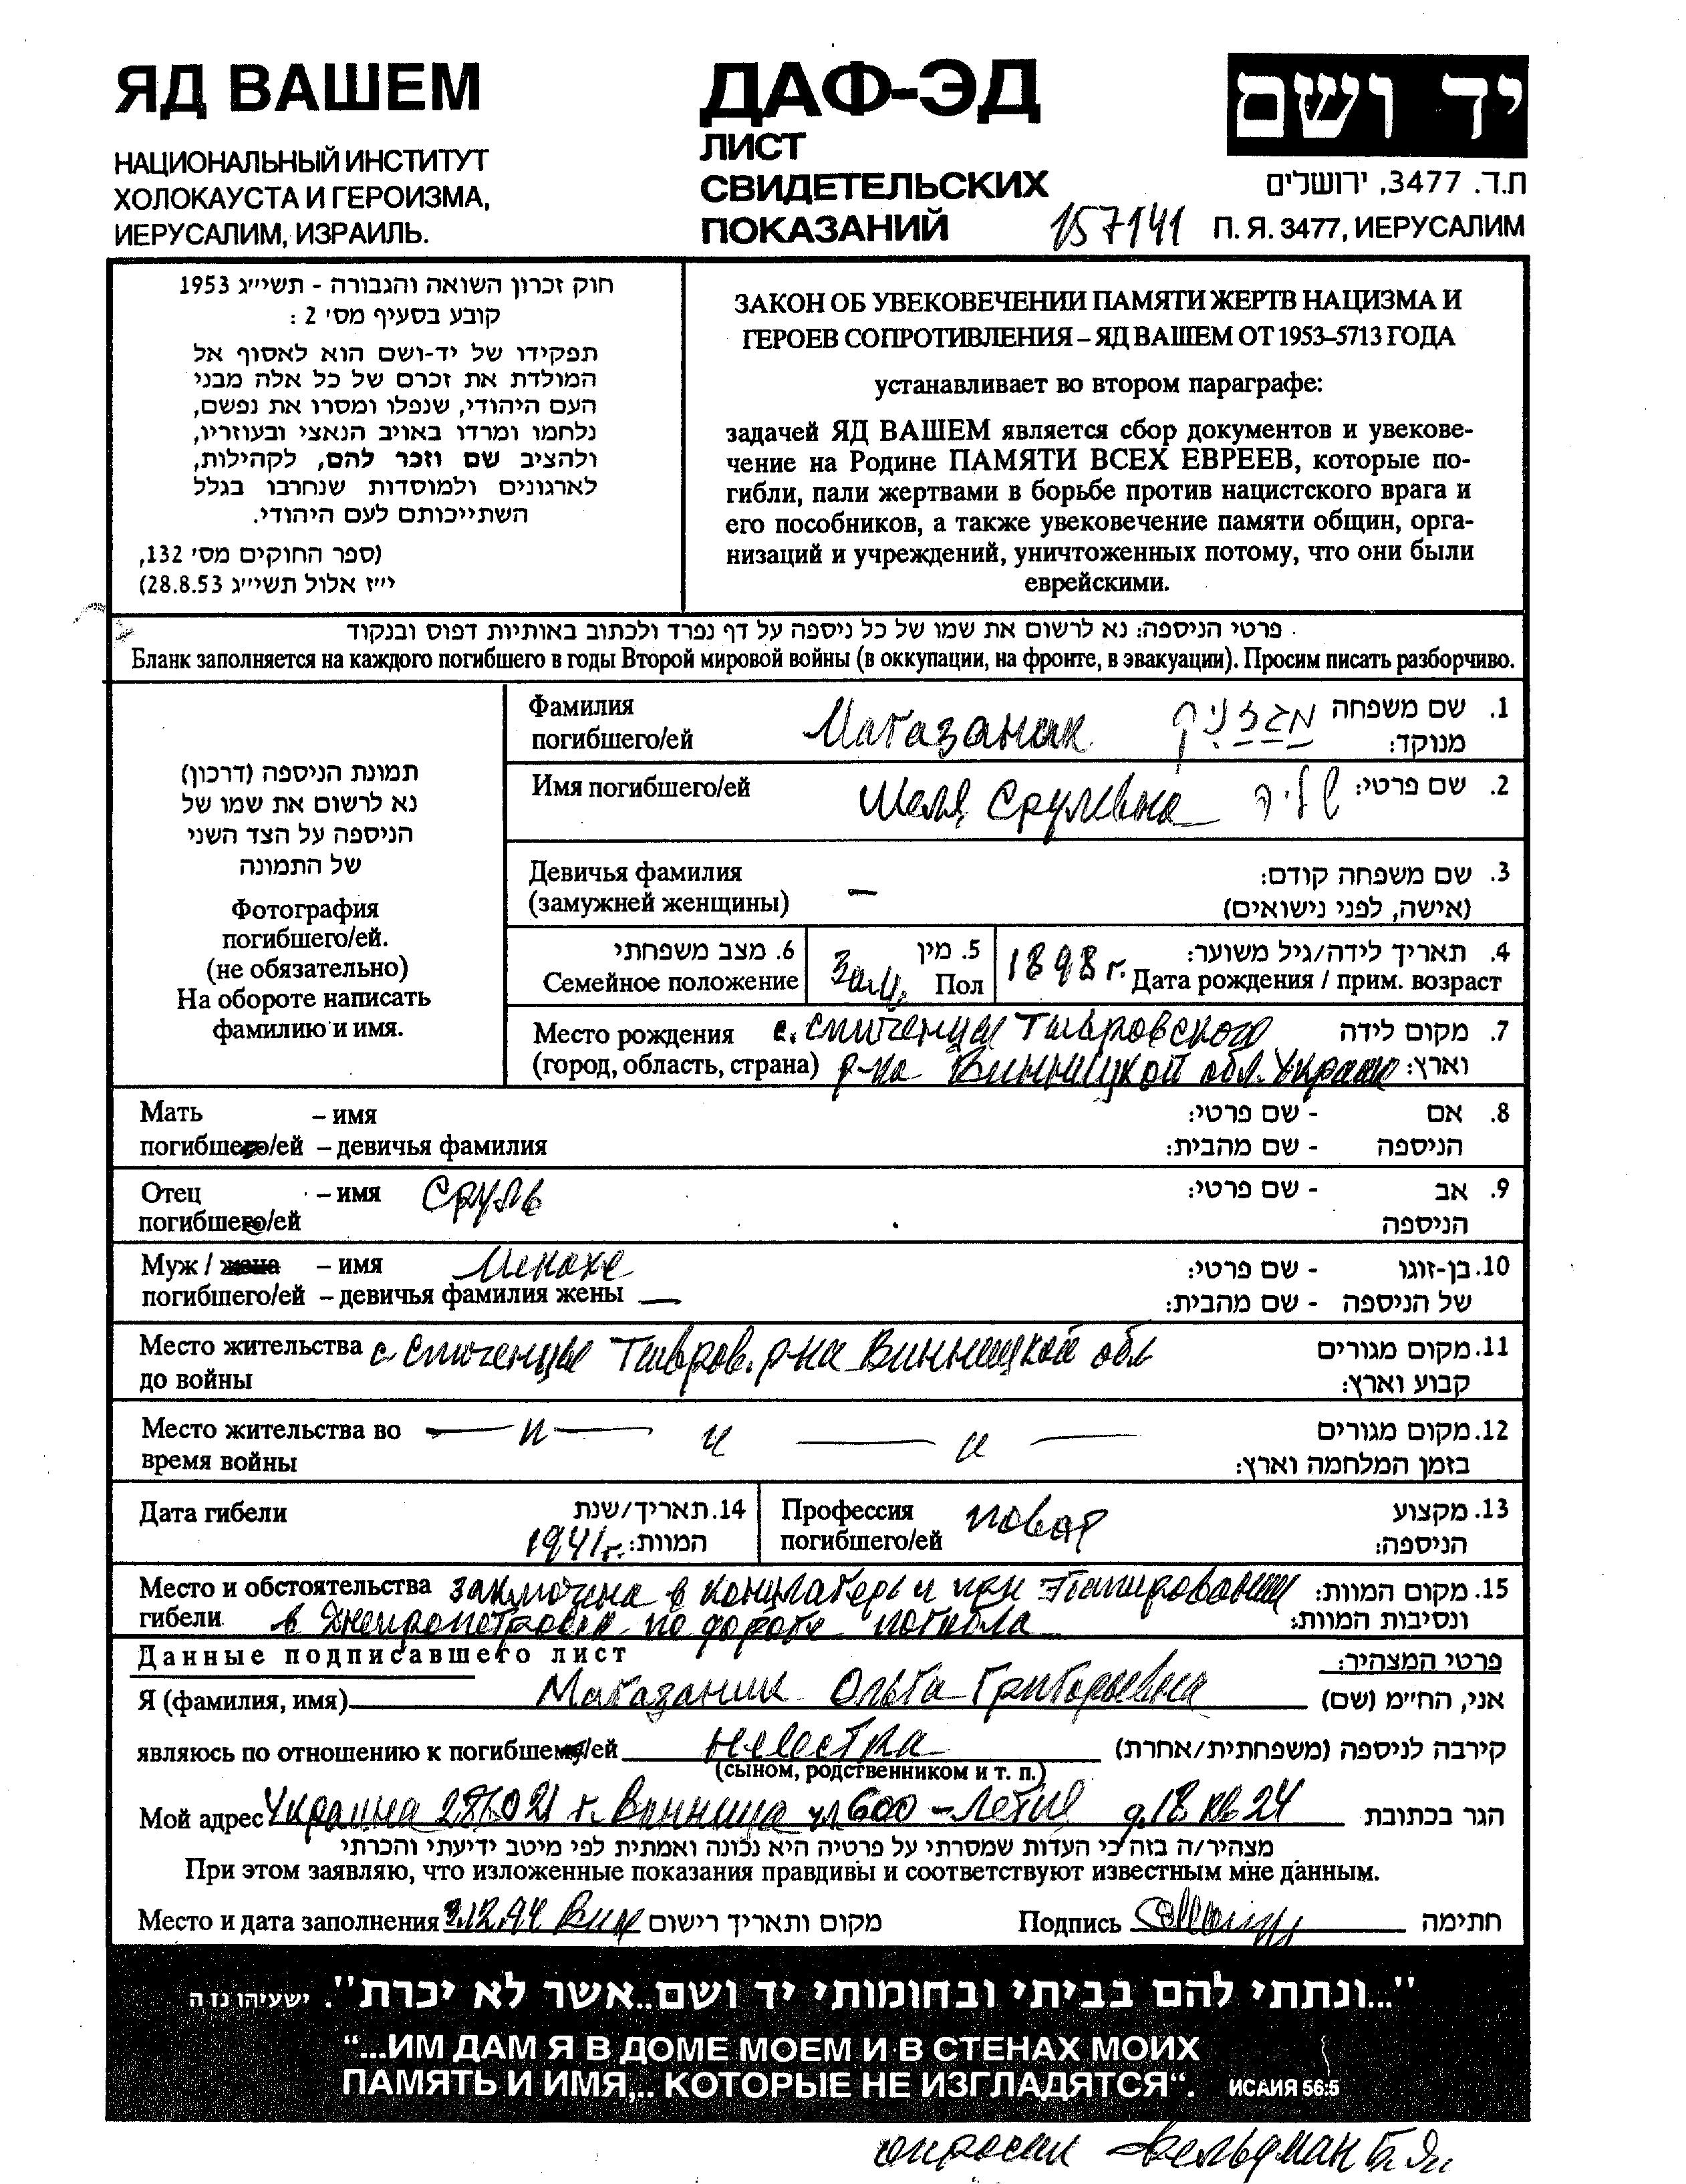 ЯД ВАШЕМ
НАЦИОНАЛЬНЫЙ ИНСТИТУТ
ХОЛОКАУСТА И ГЕРОИЗМА,
ИЕРУСАЛИМ, ИЗРАИЛЬ.
ДАФ-ЭД
ЛИСТ
СВИДЕТЕЛЬСКИХ
ПОКАЗАНИЙ 157141
יד ושם
ת.ד. 3477, ירושלים
П. Я. 3477, ИЕРУСАЛИМ
חוק זכרון השואה והגבורה - תשי״ג 1953
קובע בסעיף מס׳ 2 :
תפקידו של יד-ושם הוא לאסוף אל
המולדת את זכרם של כל אלה מבני
העם היהודי, שנפלו ומסרו את נפשם,
נלחמו ומרדו באויב הנאצי ובעוזריו,
ולהציב שם וזכר להם, לקהילות,
לארגונים ולמוסדות שנחרבו בגלל
השתייכותם לעם היהודי.
(ספר החוקים מס׳ 132,
י״ז אלול תשי״ג 28.8.53)
ЗАКОН ОБ УВЕКОВЕЧЕНИИ ПАМЯТИ ЖЕРТВ НАЦИЗМА И
ГЕРОЕВ СОПРОТИВЛЕНИЯ – ЯД ВАШЕМ ОТ 1953–5713 ГОДА
устанавливает во втором параграфе:
задачей ЯД ВАШЕМ является сбор документов и увекове-
чение на Родине ПАМЯТИ ВСЕХ ЕВРЕЕВ, которые по-
гибли, пали жертвами в борьбе против нацистского врага и
его пособников, а также увековечение памяти общин, орга-
низаций и учреждений, уничтоженных потому, что они были
еврейскими.
פרטי הניספה: נא לרשום את שמו של כל ניספה על דף נפרד ולכתוב באותיות דפוס ובנקוד
Бланк заполняется на каждого погибшего в годы Второй мировой войны (в оккупации, на фронте, в эвакуации). Просим писать разборчиво.
תמונת הניספה (דרכון)
נא לרשום את שמו של
הניספה על הצד השני
של התמונה
Фотография
погибшего/ей.
(не обязательно)
На обороте написать
фамилию и имя.
Фамилия
погибшего/ей Магазаник מגזניק
1. שם משפחה
מנוקד:
Имя погибшего/ей Шеля Срулевна שליה 2. שם פרטי:
Девичья фамилия
(замужней женщины) –
3. שם משפחה קודם:
(אישה, לפני נישואים)
6. מצב משפחתי
Семейное положение зам.
5. מין
Пол
4. תאריך לידה/גיל משוער:
1898 г. Дата рождения / прим. возраст
Место рождения с. Сличенцы Тывровского 7. מקום לידה
(город, область, страна) р-на Винницкой обл. Украин וארץ:
Мать – имя
погибшего/ей – девичья фамилия
8. אם - שם פרטי:
הניספה - שם מהבית:
Отец – имя Сруль
погибшего/ей
9. אב - שם פרטי:
הניספה
Муж / жена – имя Менахе
погибшего/ей – девичья фамилия жены —
10. בן-זוגו - שם פרטי:
של הניספה - שם מהבית:
Место жительства с Сличенцы Тывров. р-на Винницкой обл
до войны
11. מקום מגורים
קבוע וארץ:
Место жительства во — и — и — и —
время войны
12. מקום מגורים
בזמן המלחמה וארץ:
Дата гибели 14. תאריך/שנת
1941 г. המוות:
Профессия
погибшего/ей повар
13. מקצוע
הניספה:
Место и обстоятельства заключена в концлагерь и при этапировании 15. מקום המוות:
гибели в Днепропетровск по дороге погибла ונסיבות המוות:
Данные подписавшего лист פרטי המצהיר:
Я (фамилия, имя) Магазаник Ольга Григорьевна אני, הח״מ (שם)
являюсь по отношению к погибшему/ей невестка קירבה לניספה (משפחתית/אחרת)
(сыном, родственником и т. п.)
Мой адрес Украина 286021 г. Винница ул 600-Летия д.18 кв 24 הגר בכתובת
מצהיר/ה בזה כי העדות שמסרתי על פרטיה היא נכונה ואמתית לפי מיטב ידיעתי והכרתי
При этом заявляю, что изложенные показания правдивы и соответствуют известным мне данным.
Место и дата заполнения 2.12.94 Вин מקום ותאריך רישום Подпись חתימה
"...ונתתי להם בביתי ובחומותי יד ושם..אשר לא יכרת". ישעיהו נז ה
“...ИМ ДАМ Я В ДОМЕ МОЕМ И В СТЕНАХ МОИХ
ПАМЯТЬ И ИМЯ,.. КОТОРЫЕ НЕ ИЗГЛАДЯТСЯ“. ИСАИЯ 56:5
опросил Фельдман Б.Я.